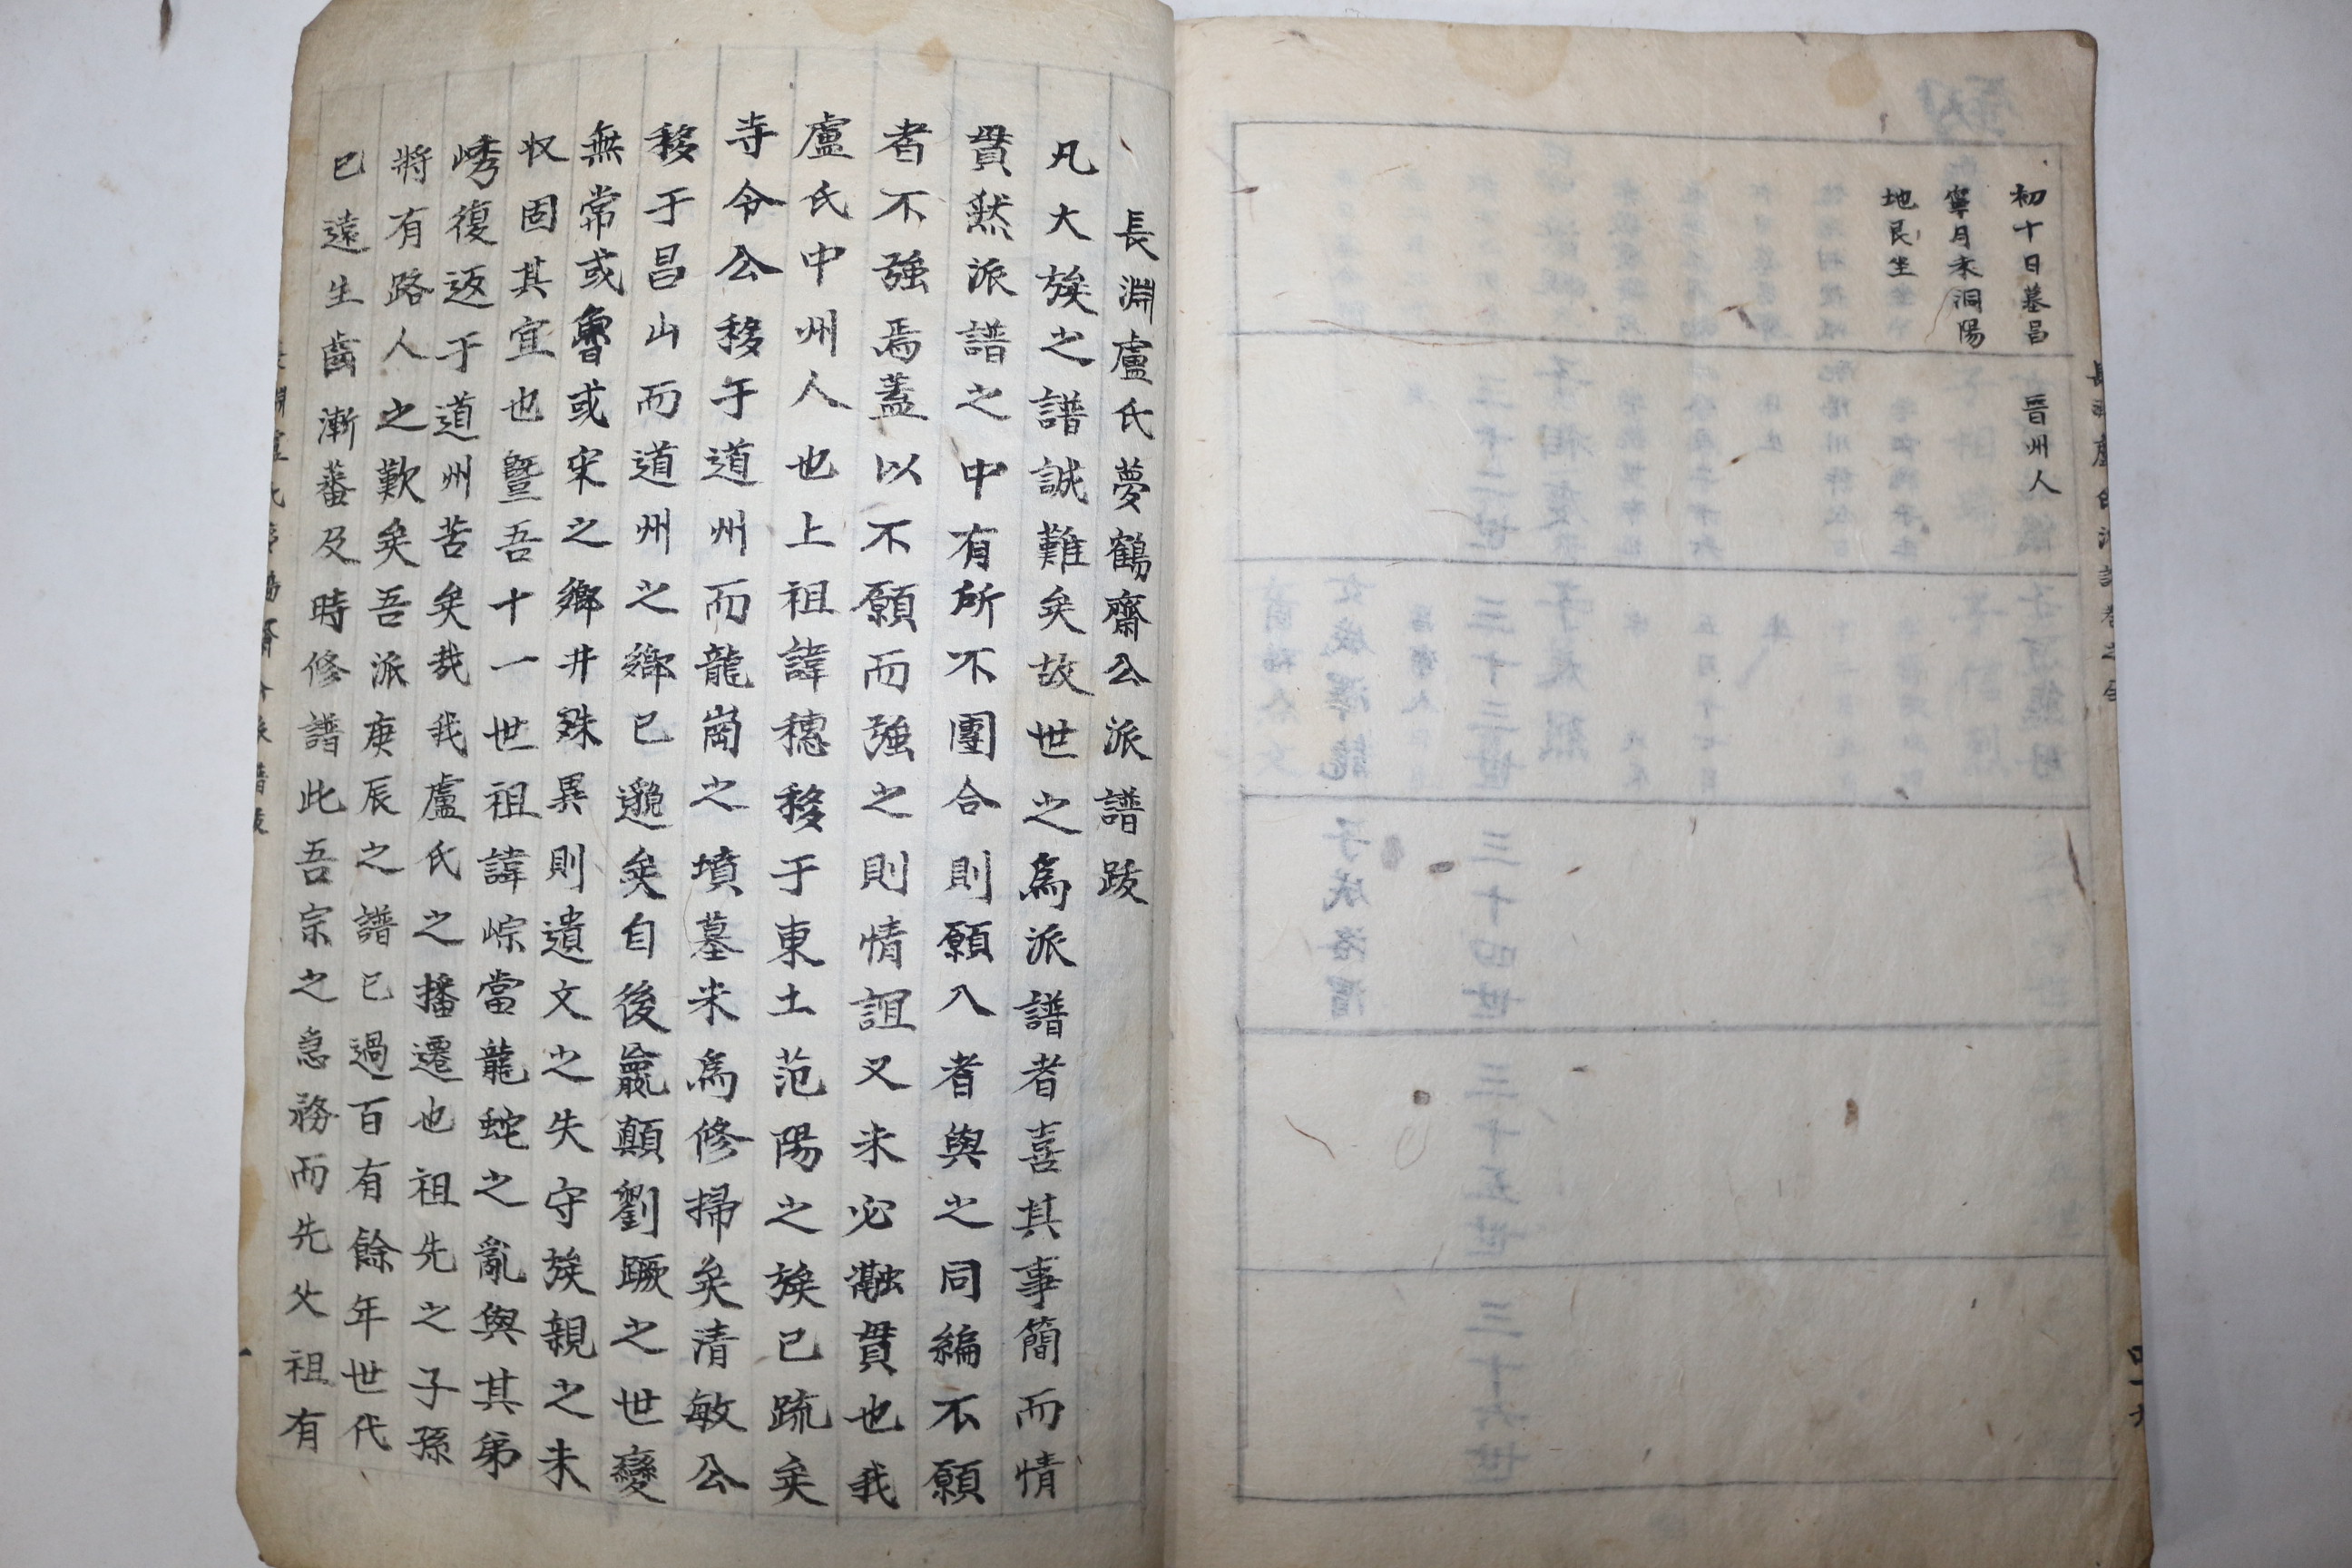 初十日墓昌
寧月末洞陽
地艮坐
晋州人
長淵盧氏夢鶴齋公派譜跋
凡大族之譜誠難矣故世之爲派譜者喜其事簡而情
貫然派譜之中有所不團合則願入者與之同編不願
者不強焉蓋以不願而強之則情詛又未必瀜貫也我
盧氏中州人也上祖諱穗移于東土范陽之族已疏矣
寺令公移于道州而龍崗之墳墓未爲修掃矣清敏公
移于昌山而道州之鄕已邈矣自後嬴顚劉蹶之世變
無常或魯或宋之鄕井殊異則遺文之失守族親之未
収固其宜也曁吾十一世祖諱崇當龍蛇之亂與其弟
復返于道州苦矣哉我盧氏之播遷也祖先之子孫
將有路人之歎矣吾派庚辰之譜已過百有餘年世代
已遠生齒漸蕃及時修譜此吾宗之急務而先父祖有